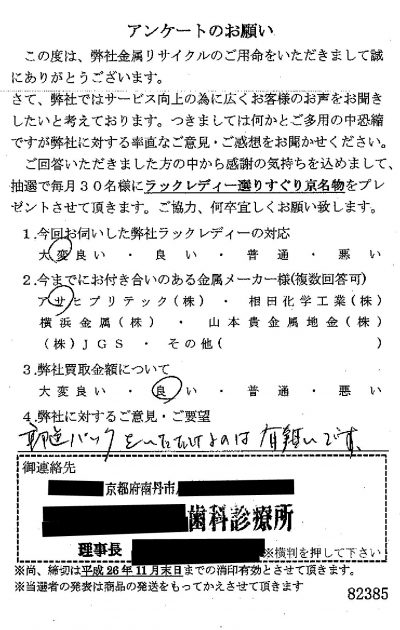 アンケートのお願い
この度は、弊社金属リサイクルのご用命をいただきまして誠
にありがとうございます。
さて、弊社ではサービス向上の為に広くお客様のお声をお聞き
したいと考えております。つきましては何かとご多用の中恐縮
ですが弊社に対する率直なご意見・ご感想をお聞かせください。
ご回答いただきました方の中から感謝の気持ちを込めまして、
抽選で毎月３０名様にラックレディー選りすぐり京名物をプレ
ゼントさせて頂きます。ご協力、何卒宜しくお願い致します。
１.今回お伺いした弊社ラックレディーの対応
大変良い・良い・普通・悪い
２.今までにお付き合いのある金属メーカー様(複数回答可)
アサヒプリテック(株)・相田化学工業(株)
横浜金属(株)・山本貴金属地金(株)
(株)JGS・その他(　　　)
３.弊社買取金額について
大変良い・良い・普通・悪い
４.弊社に対するご意見・ご要望
郵送パックをいただけるのは有難いです。
御連絡先
京都府南丹市
歯科診療所
理事長
※横判を押して下さい
※尚、締切は平成26年11月末日までの消印有効とさせて頂きます。
※当選者の発表は商品の発送をもってかえさせて頂きます
82385